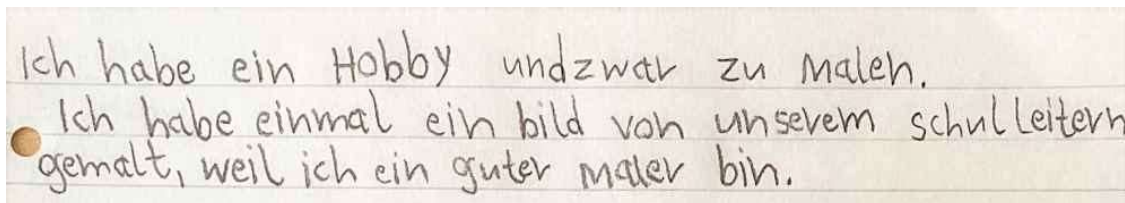 Ich habe ein Hobby undzwar zu malen.
Ich habe einmal ein bild von unserem schulleitern
gemalt, weil ich ein guter maler bin.